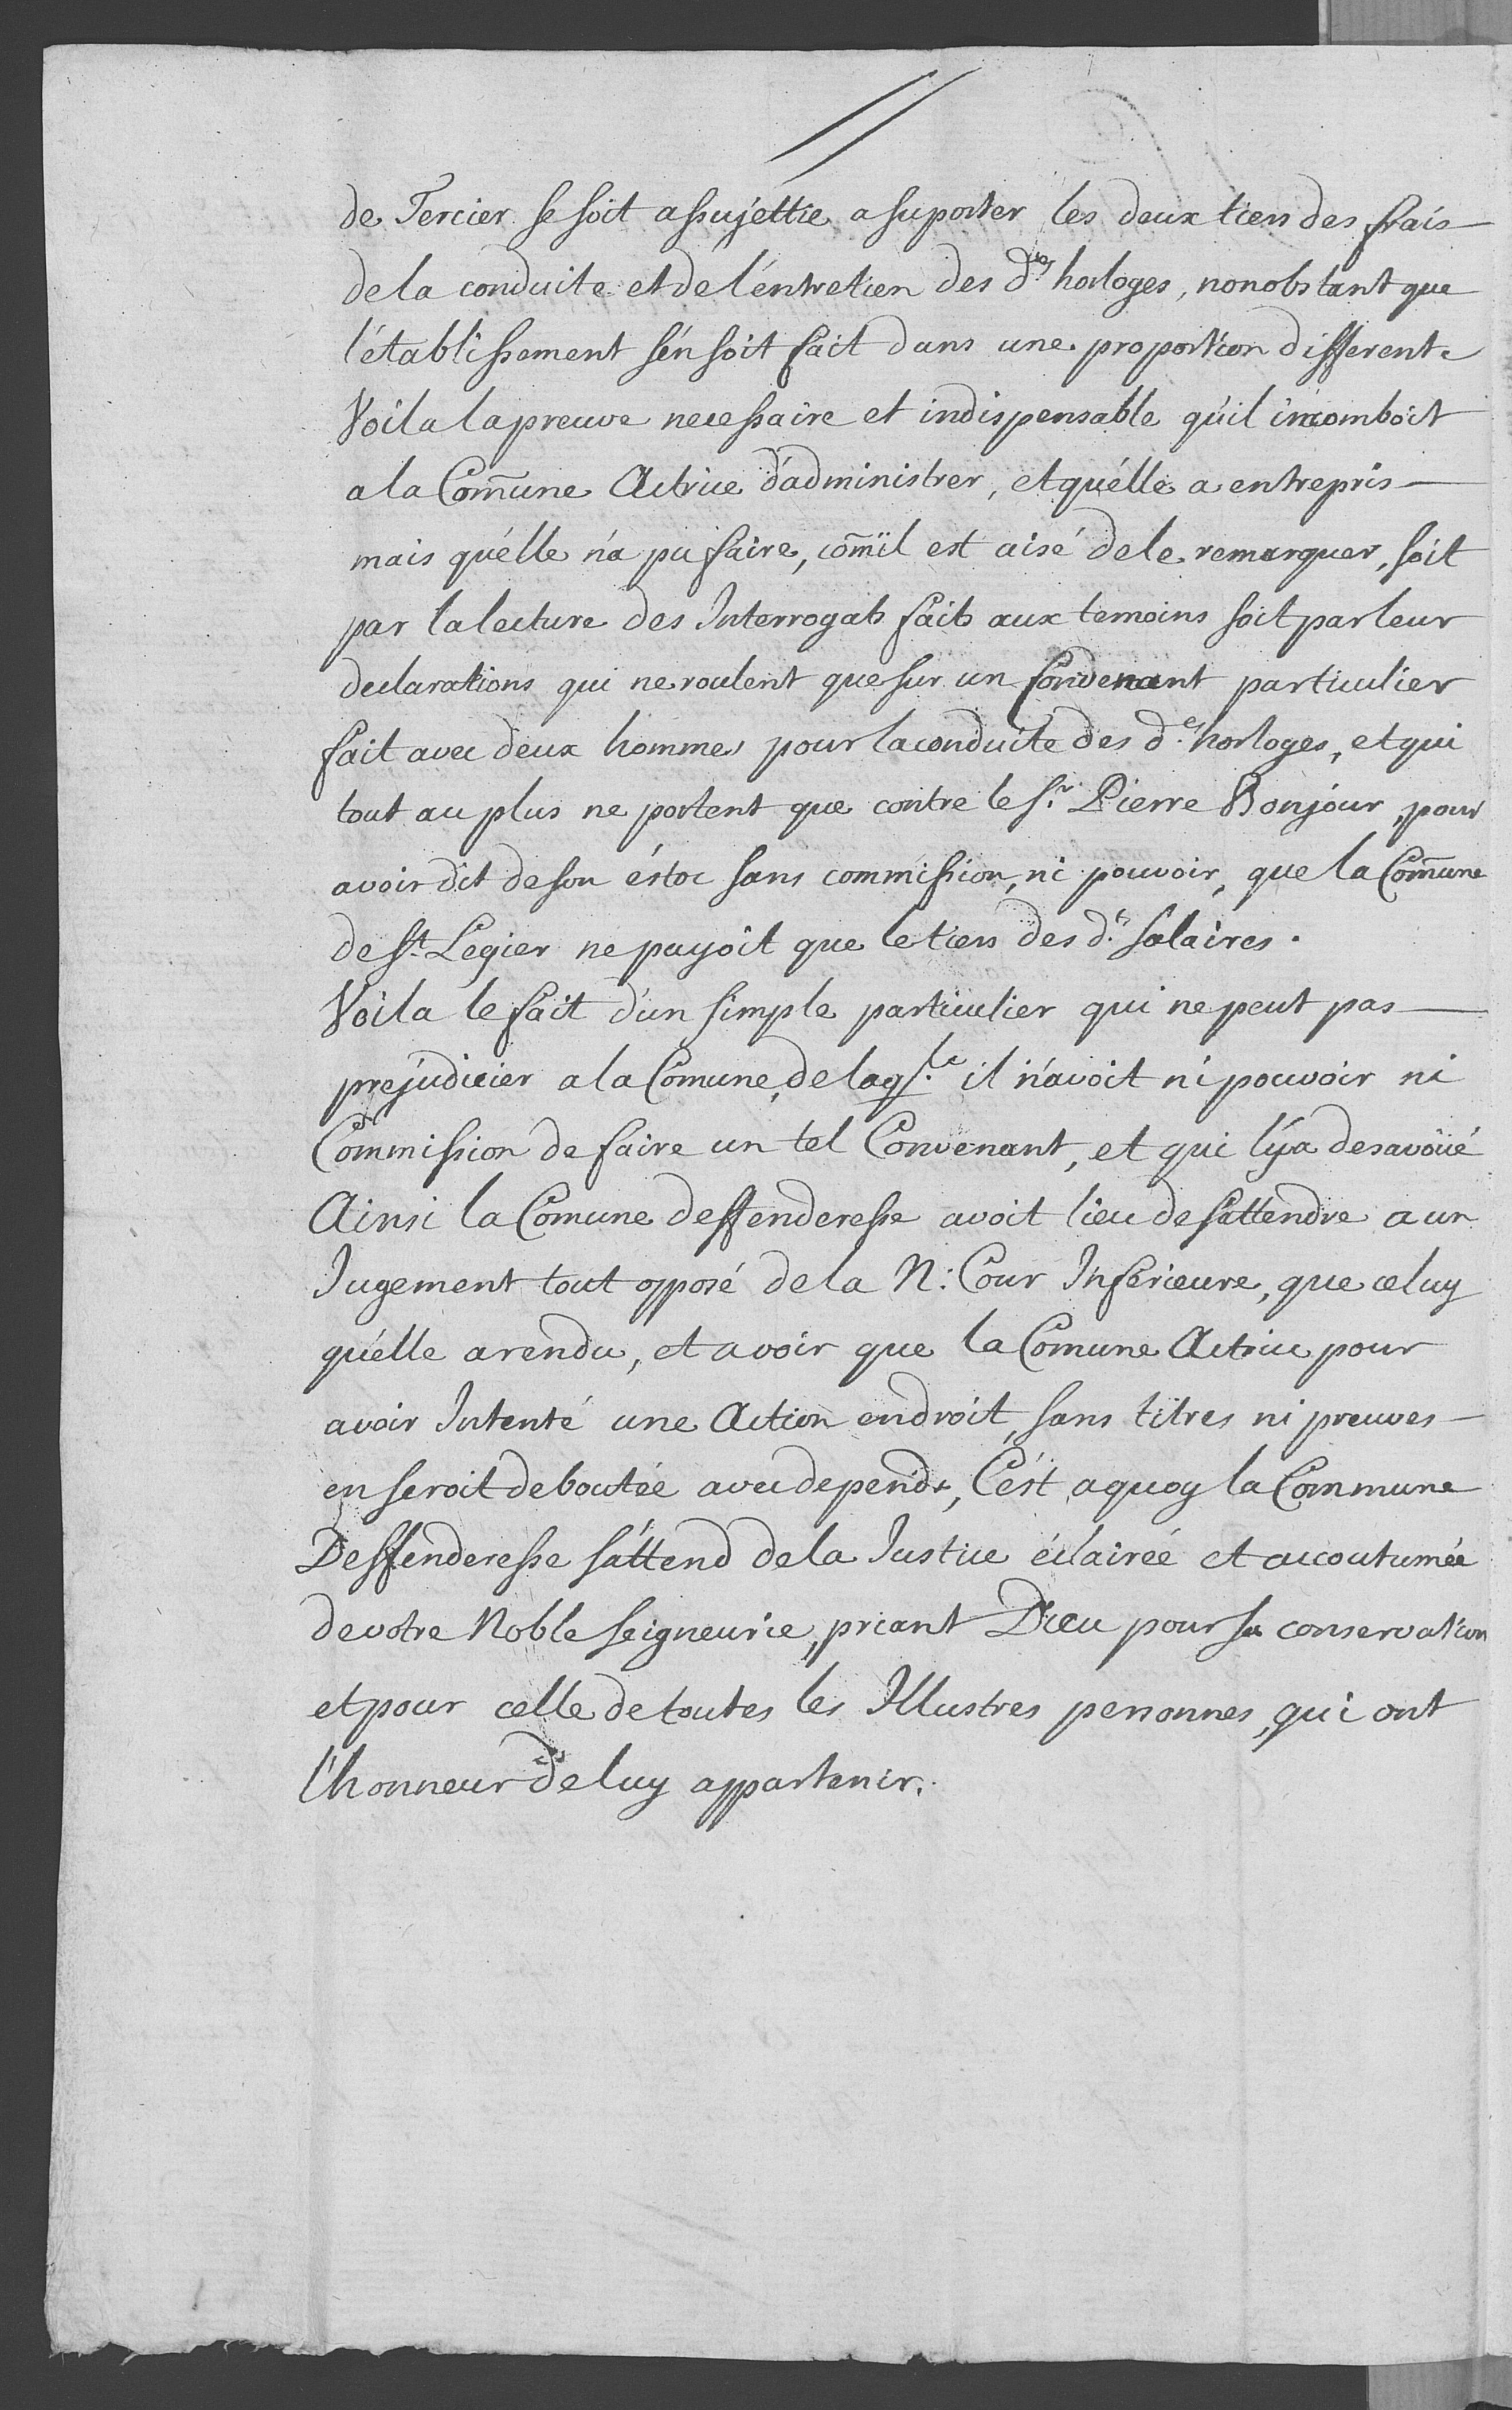 de Tercier se soit assujettie a suporter les deux tiers des frais
de la conduite et de l'éntretien des d.es horloges, nonobstant que
l'établissement s'én soit fait dans une proportion differente
Voila la preuve necessaire et indispensable qu'il incomboit
a la Com̄une Actrice d'administrer, et qu'élle a entrepris
mais qu'élle n'a pu faire, com̄'il est aisé de le remarquer, soit
par la lecture des Interrogats faits aux temoins soit par leur
declarations qui ne roulent que sur un Convenant particulier
fait avec deux hommes pour la conduite des d.es horloges, et qui
tout au plus ne portent que contre le S.r Pierre Bonjour, pour
avoir dit de son éstoc sans commission, ni pouvoir, que la Com̄une
de St. Legier ne payoit que le tiers des d.ts salaires.
Voila le fait d'un simple particulier qui ne peut pas
prejudicier a la Comune, de laq.le il n'avoit ni pouvoir ni
Commission de faire un tel Convenant, et qui l'y a desavoüé
Ainsi la Comune deffenderesse avoit lieu de s'attendre a un
Jugement tout opposé de la N: Cour Inferieure, que celuy
qu'élle a rendu, et a voir que la Comune Actrice pour
avoir Intenté une Action en droit, sans titres ni preuves
en seroit deboutée avec depends, C'ést a quoy la Commune
Deffenderesse s'attend de la Justice éclairée et accoutumée
de votre Noble Seigneurie, priant Dieu pour sa conservation
et pour celle de toutes les Illustres personnes, qui ont
l'honneur de luy appartenir.